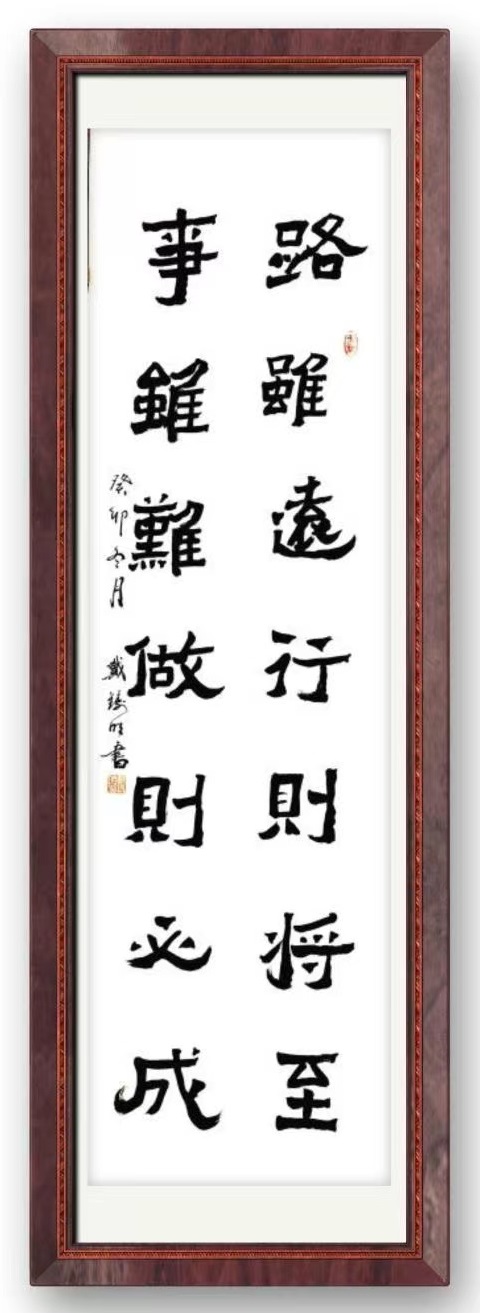 路雖遠行則将至
事雖難做則必成
癸卯冬月
戴
書